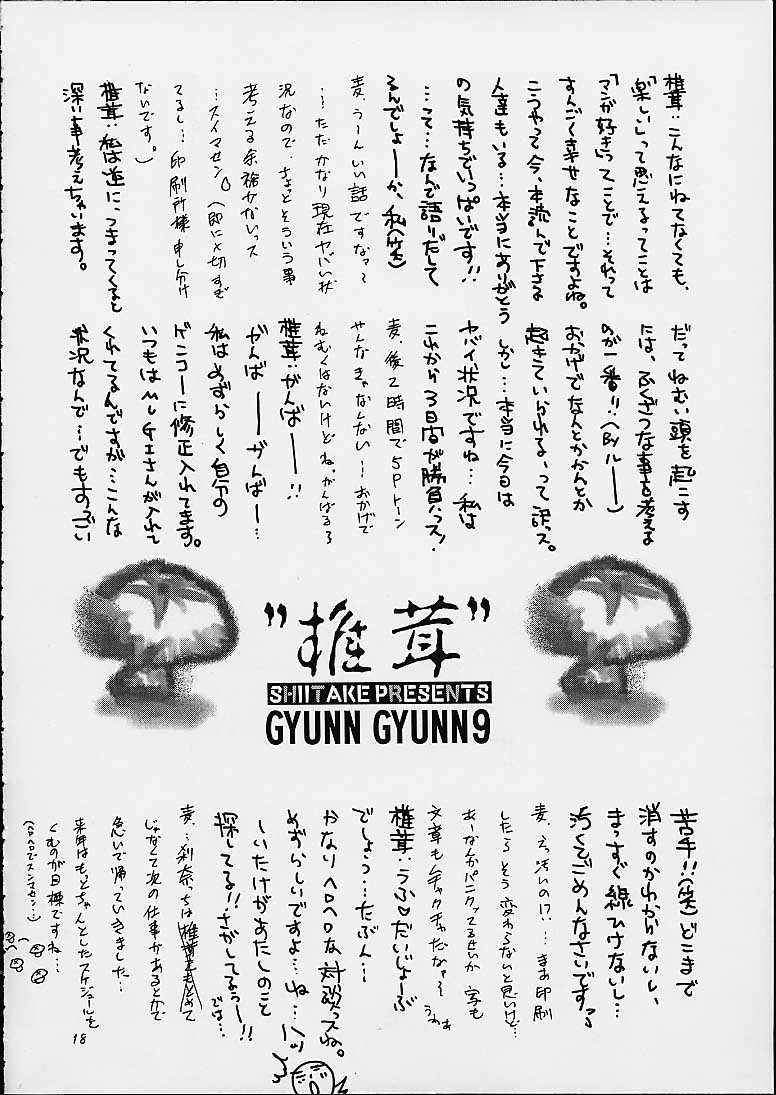 椎茸:こんなにねてなくても、
「楽しい」って思えるってことは
「マンガ好き」ってことで…それって
すんごく幸せなことですよね。
こうやって今、本読んで下さる
人達もいる…本当にありがとう
の気持ちでいっぱいです!!
…って…なんで語りだして
るんでしょーか、私(笑)
麦:うーんいい話ですなァ〜
…ただかなり現在ヤバい状
況なので、ちょっとそういう事
考える余裕がないっス
…スイマセン(即に〆切すぎ
てるし…印刷所様申し分け
ないです。)
椎茸:私は逆に、つまってくると
深い事考えちゃいます。
だってねむい頭を起こす
には、ふくざつな事を考える
のが一番!!
おかげでなんとかかんとか
起きていられる、って訳っス。
しかし…本当に今日は
ヤバイ状況ですね…私は
これから3日間が勝負っス!
麦:後2時間で5Pトーン
やんなきゃなんない…おかげで
ねむくはないけどね、がんばるろ
椎茸:がんばーー!!
がんばーーがんばー…
私はめずらしく自分の
ゲンコーに修正入れてます。
いつもはMUGIさんが入れて
くれてるんですが…こんな
状況なんで…でもすっごい
"椎茸"
SHIITAKE PRESENTS
GYUNN GYUNN9
苦手!!(笑)どこまで
消すのかわかんないし、
まっすぐ線ひけないし…
汚くてごめんなさいですっ
麦:えっ汚いの!?…まあ印刷
したらそう変わらないと思いけど…
あーなんかパニクってるせいか字も
文章もムチャクチャだなァ〜
うわぁ
椎茸:うふだいじょーぶ
でしょっ…たぶん…
かなりヘロヘロな対談っスね。
めずらしいですよ…ね…ハッ
しいたけがあたしのこと
探してる!!さがしてるぅー!!
では…
麦:…刹奈っちは椎茸をもとめて
じゃなくて次の仕事があるとかで
急いで帰っていきました…
来年はもっとちゃんとしたスケジュールを
くむのが目標ですね…
(ヘロヘロでスンマセン…)
18